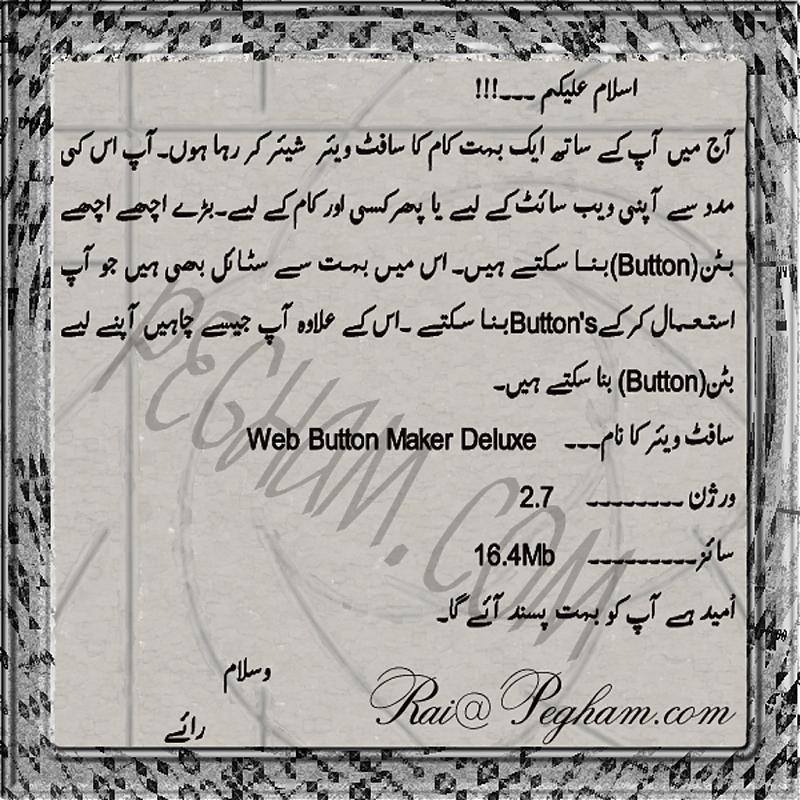 اسلام علیکم ۔۔۔!!!
آج میں آپ کے ساتھ ایک بہت کام کا سافٹ ویئر شیئر کر رہا ہوں۔ آپ اس کی
مدد سے آپنی ویب سائٹ کے لیے یا پھر کسی اور کام کے لیے۔بڑے اچھے اچھے
بٹن(Button)بنا سکتے ہیں۔ اس میں بہت سے سٹائل بھی ہیں جو آپ
استعمال کر کےButton'sبنا سکتے ۔اس کے علاوہ آپ جیسے چاہیں آپنے لیے
بٹن(Button) بنا سکتے ہیں۔
سافٹ ویئر کا نام۔۔۔ Web Button Maker Deluxe
ورژن ۔۔۔۔۔۔۔۔ 2.7
سائز۔۔۔۔۔۔۔۔۔ 16.4Mb
اُمید ہے آپ کو بہت پسند آئے گا۔
وسلام
رائے
Rai@Pegham.com
PEGHAM.COM